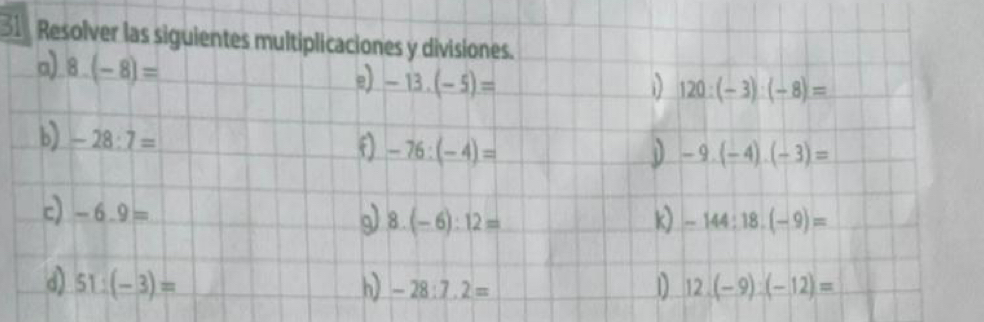 31 Resolver las siguientes multiplicaciones y divisiones.
a) 8 . (- 8) =
e) - 13 . (- 5) =
i) 120 : (- 3) : (- 8) =
b) - 28 : 7 =
f) - 76 : (- 4) =
j) - 9 . (- 4) . (- 3) =
c) - 6 . 9 =
g) 8 . (- 6) : 12 =
k) - 144 : 18 . (- 9) =
d) 51 : (- 3) =
h) - 28 : 7 . 2 =
l) 12 . (- 9) : (- 12) =